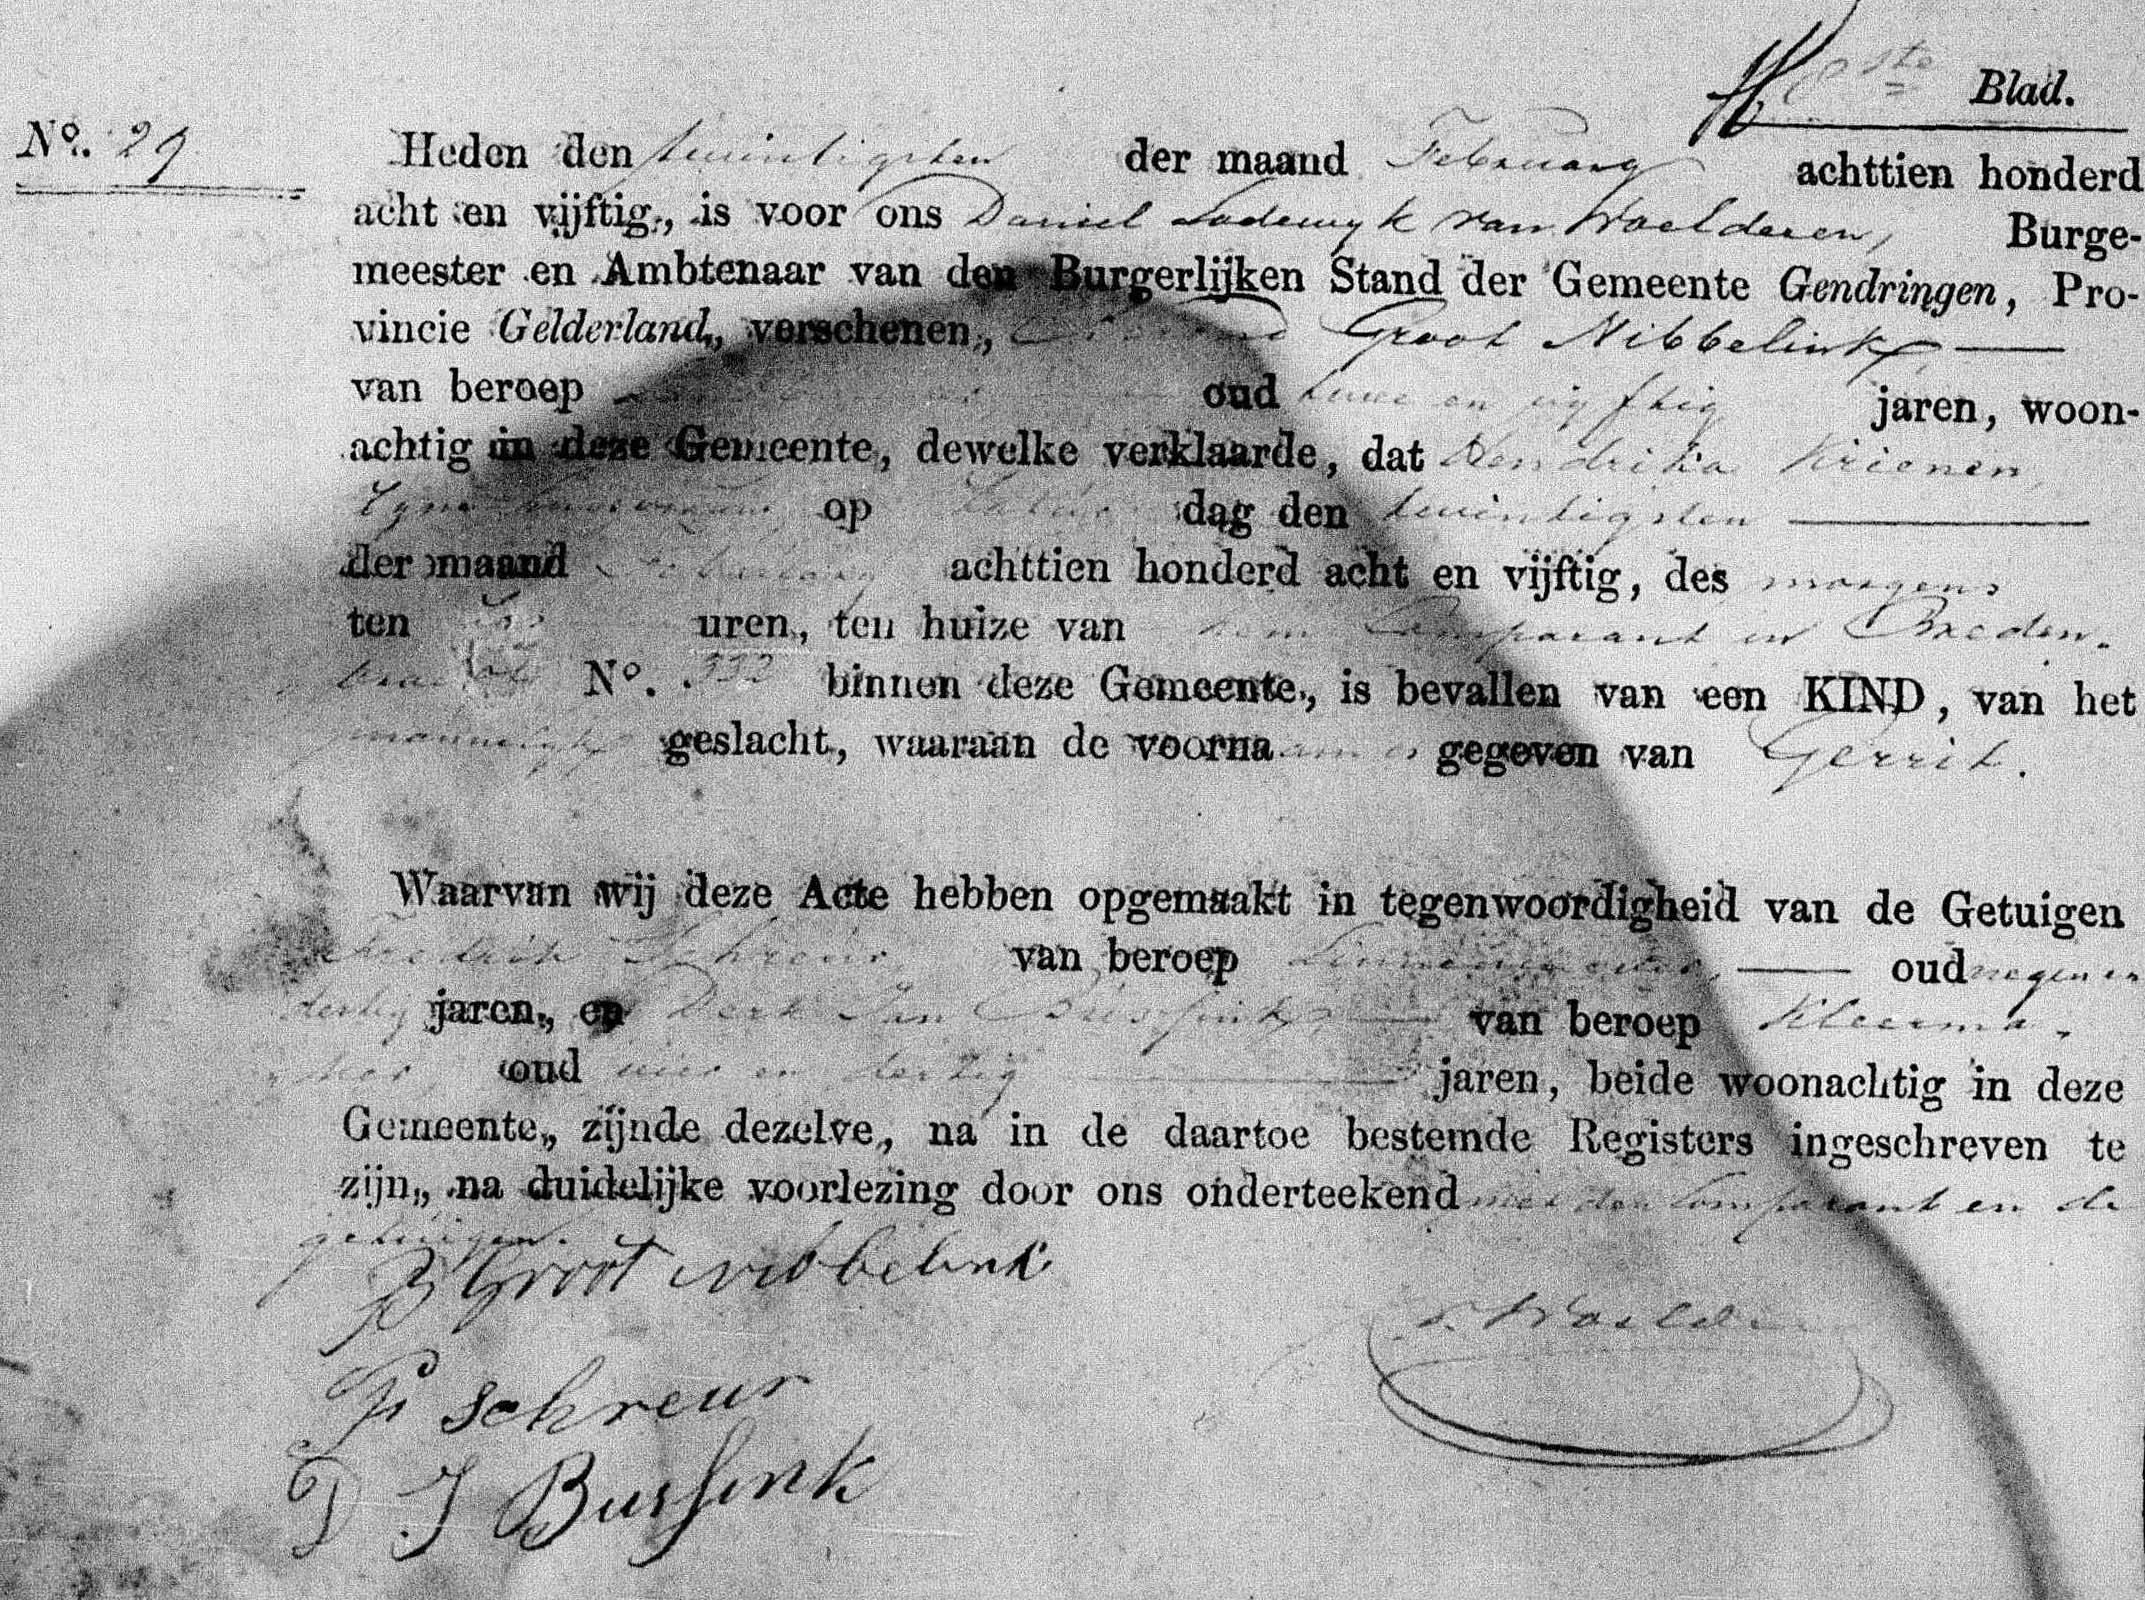 ste Blad.
No. 29
Heden den twintigsten der maand February achttien honderd
acht en vijftig, is voor ons Daniel Lodewyk van Woelderen, Burge-
meester en Ambtenaar van den Burgerlijken Stand der Gemeente Gendringen, Pro-
vincie Gelderland, verschenen, Groot Nibbelink
van beroep oud twee en vyftig jaren, woon-
achtig in deze Gemeente, dewelke verklaarde, dat Hendrika Krienen,
zyne huisvrouw, op Zatur dag den twintigsten
der maand February achttien honderd acht en vijftig, des morgens
ten uren, ten huize van hem Comparant in Breden-
broek No. 332 binnen deze Gemeente, is bevallen van een KIND, van het
mannelyk geslacht, waaraan de voorna gegeven van Gerrit.
Waarvan wij deze Acte hebben opgemaakt in tegenwoordigheid van de Getuigen
Fredrik Schreur, van beroep oud negen en
dertig jaren, en Derk Jan Bussink, van beroep Kleerma-
ker, oud vier en dertig jaren, beide woonachtig in deze
Gemeente, zijnde dezelve, na in de daartoe bestemde Registers ingeschreven te
zijn, na duidelijke voorlezing door ons onderteekend met den Comparant en de
getuigen.
B Groot nibbelink
v. Woelderen
Fr schreur
D J Bussink